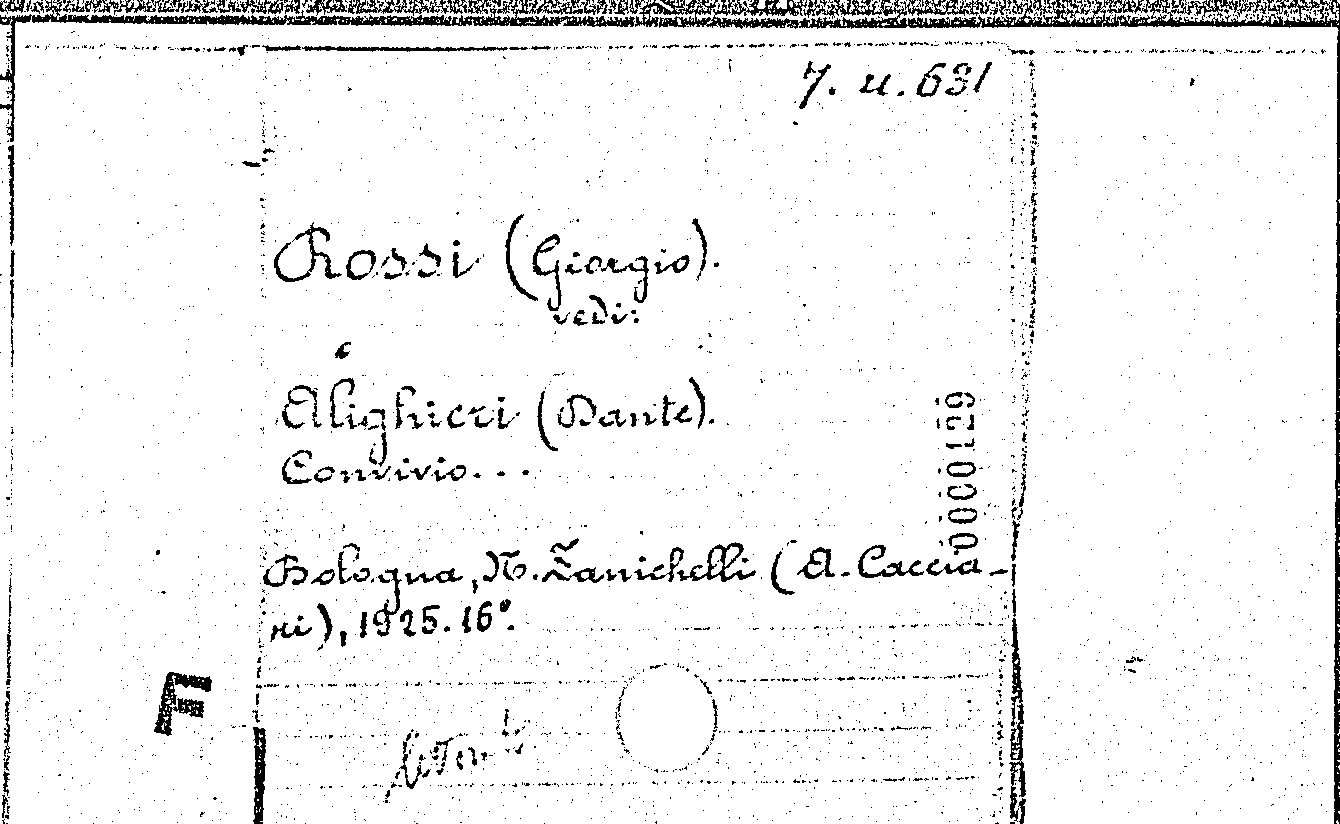 7. u. 631
Rossi (Giorgio).
vedi:
Alighieri (Dante).
Convivio...
00000129
Bologna, N. Zanichelli (A. Caccia-
ri), 1925. 16°.
F